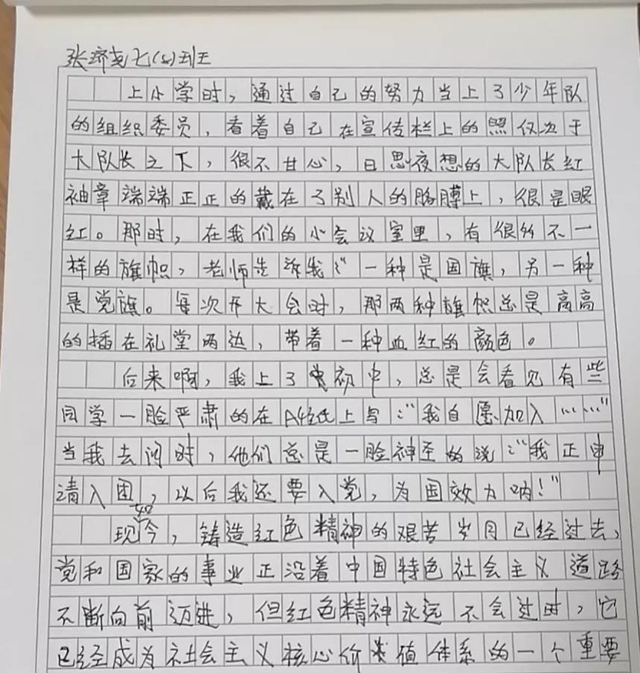 张哜尧七(5)班
上小学时，通过自己的努力当上了少年队
的组织委员，看着自己在宣传栏上的照仅次于
大队长之下，很不甘心，日思夜想的大队长红
袖章端端正正的戴在了别人的胳膊上，很是眼
红。那时，在我们的小会议室里，有很多不一
样的旗帜，老师告诉我：“一种是国旗，另一种
是党旗。每次开大会时，那两种旗帜总是高高
的插在礼堂两边，带着一种血红的颜色。
后来啊，我上了初中，总是会看见有些
同学一脸严肃的在A4纸上写：“我自愿加入……”
当我去问时，他们总是一脸神圣的说：“我正申
请入团，以后我还要入党，为国效力呐！”
现如今，铸造红色精神的艰苦岁月已经过去，
党和国家的事业正沿着中国特色社会主义道路
不断向前迈进，但红色精神永远不会过时，它
已经成为社会主义核心价值体系的一个重要